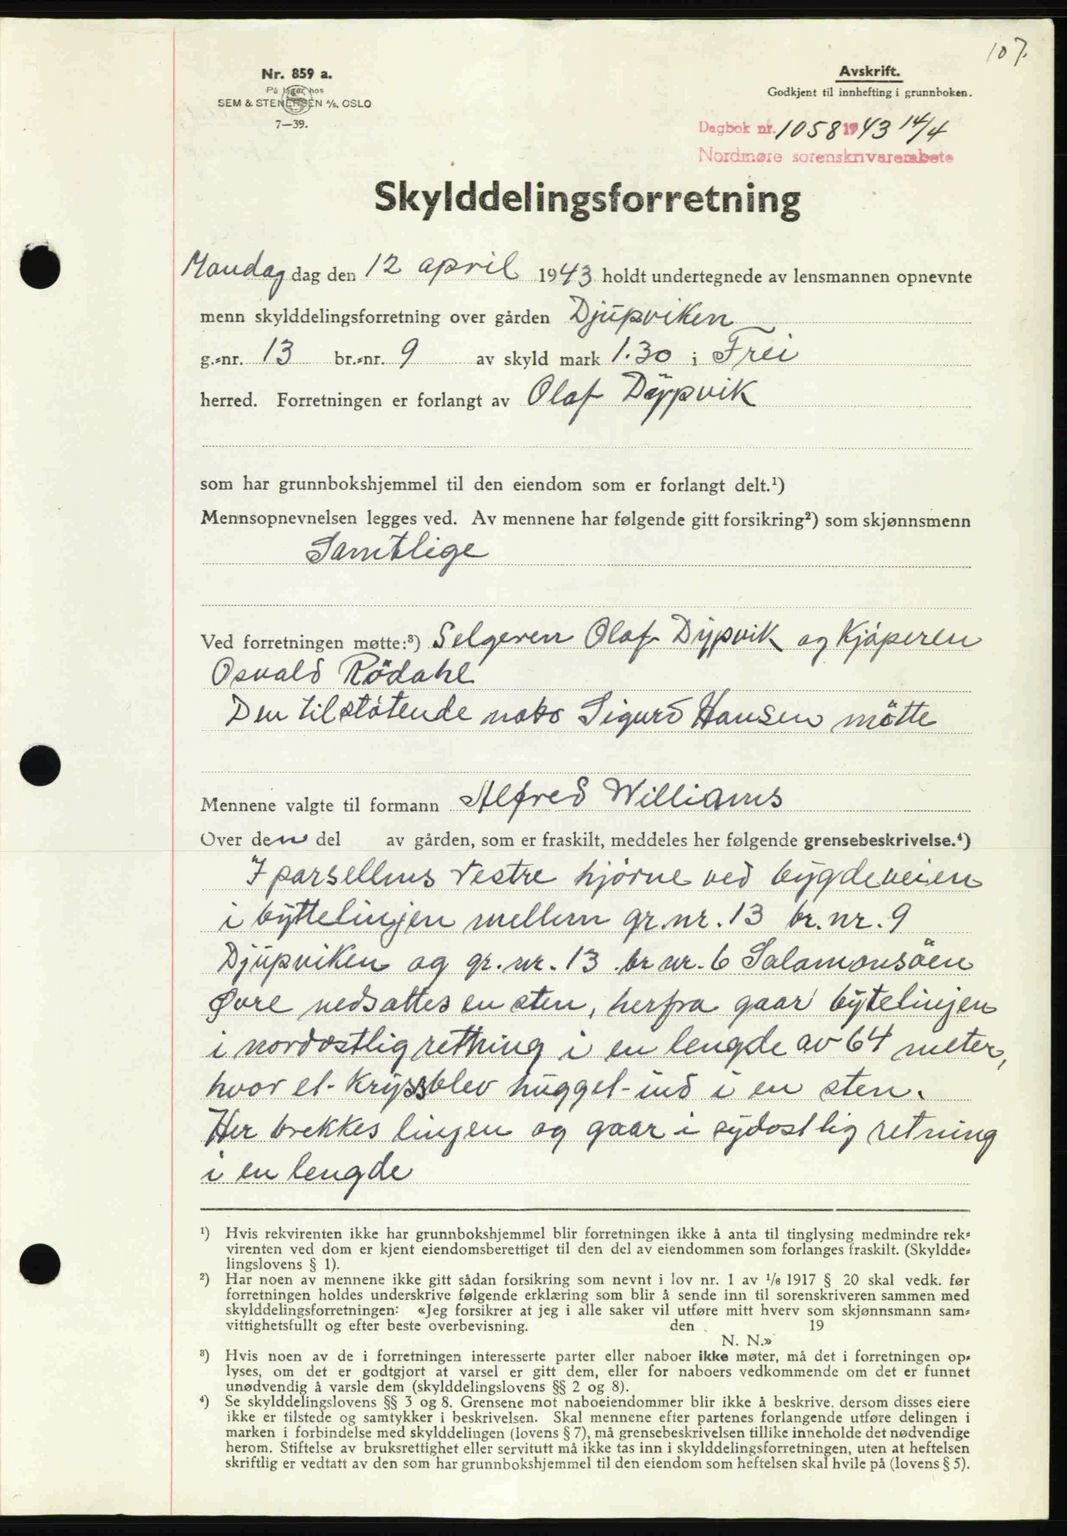 107.
Nr. 859 a.
På lager hos
SEM & STENERSEN A/S, OSLO
7—39.
Avskrift.
Godkjent til innhefting i grunnboken.
Dagbok nr. 1058 1943 14/4
Nordmøre sorenskriverembete
Skylddelingsforretning
Mandag dag den 12 april 1943 holdt undertegnede av lensmannen opnevnte
menn skylddelingsforretning over gården Djupviken
g.-nr. 13 br.-nr. 9 av skyld mark 1.30 i Frei
herred. Forretningen er forlangt av Olaf Dypvik
som har grunnbokshjemmel til den eiendom som er forlangt delt.¹)
Mennsopnevnelsen legges ved. Av mennene har følgende gitt forsikring²) som skjønnsmenn
Samtlige
Ved forretningen møtte:³) Selgeren Olaf Dypvik og Kjøperen
Osvald Rödahl
Den tilstøtende nabo Sigurd Hansen møtte
Mennene valgte til formann Alfred Williams
Over den del av gården, som er fraskilt, meddeles her følgende grensebeskrivelse.⁴)
I parsellens vestre hjørne ved bygdeveien
i byttelinjen mellem gr.nr. 13 br.nr. 9
Djupviken og gr.nr. 13 br nr. 6 Salamonsöen
Øvre nedsattes en sten, herfra gaar bytelinjen
i nordostlig rettning i en lengde av 64 meter,
hvor et kryss blev hugget ind i en sten.
Her brekkes linjen og gaar i sydostlig retning
i en lengde
¹) Hvis rekvirenten ikke har grunnbokshjemmel blir forretningen ikke å anta til tinglysing medmindre rek-
virenten ved dom er kjent eiendomsberettiget til den del av eiendommen som forlanges fraskilt. (Skyldde-
lingslovens § 1).
²) Har noen av mennene ikke gitt sådan forsikring som nevnt i lov nr. 1 av 1/6 1917 § 20 skal vedk. før
forretningen holdes underskrive følgende erklæring som blir å sende inn til sorenskriveren sammen med
skylddelingsforretningen: «Jeg forsikrer at jeg i alle saker vil utføre mitt hverv som skjønnsmann sam-
vittighetsfullt og efter beste overbevisning. den 19
N. N.»
³) Hvis noen av de i forretningen interesserte parter eller naboer ikke møter, må det i forretningen op-
lyses, om det er godtgjort at varsel er gitt dem, eller for naboers vedkommende om det er funnet
unødvendig å varsle dem (skylddelingslovens §§ 2 og 8).
⁴) Se skylddelingslovens §§ 3 og 8. Grensene mot naboeiendommer blir ikke å beskrive, dersom disses eiere
ikke er tilstede og samtykker i beskrivelsen. Skal mennene efter partenes forlangende utføre delingen i
marken i forbindelse med skylddelingen (lovens § 7), må grensebeskrivelsen tillike inneholde det nødvendige
herom. Stiftelse av bruksrettighet eller servitutt må ikke tas inn i skylddelingsforretningen, uten at heftelsen
skriftlig er vedtatt av den som har grunnbokshjemmel til den eiendom som heftelsen skal hvile på (lovens § 5).